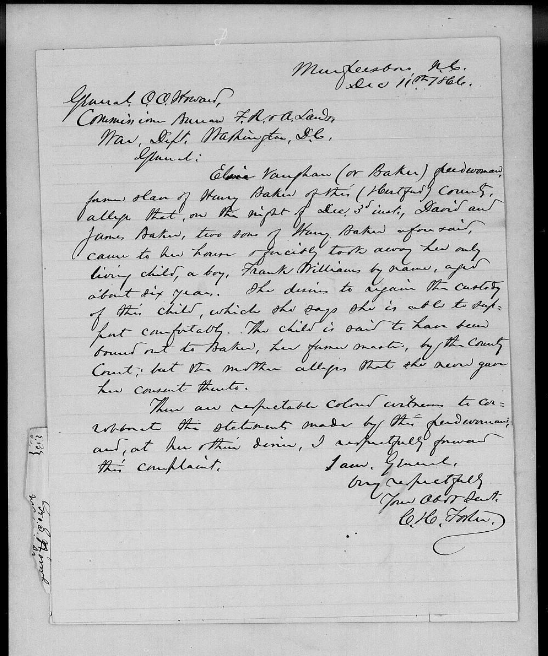 Murfreesboro, N.C.
Dec 11th, 1866.
General O. O. Howard,
Commissioner Bureau F. R. & A. Lands
War, Dept. Washington, D.C.
General:
Elvira Vaughan (or Baker) freedwoman,
former slave of Henry Baker of this (Hertford) County,
alleges that, on the night of Dec. 3d inst., David and
James Baker, two sons of Henry Baker aforesaid,
came to her house & forcibly took away her only
living child, a boy, Frank Williams by name, aged
about six years. She desires to regain the custody
of this child, which she says she is able to sup-
port comfortably. The child is said to have been
bound out to Baker, her former master, by the County
Court; but the mother alleges that she never gave
her consent thereto.
There are respectable colored witnesses to cor-
roborate the statements made by this freedwoman,
and, at her desire, I respectfully forward
this complaint.
I am, General,
Very respectfully
Your Obdt Servt.
C. H. Foster.